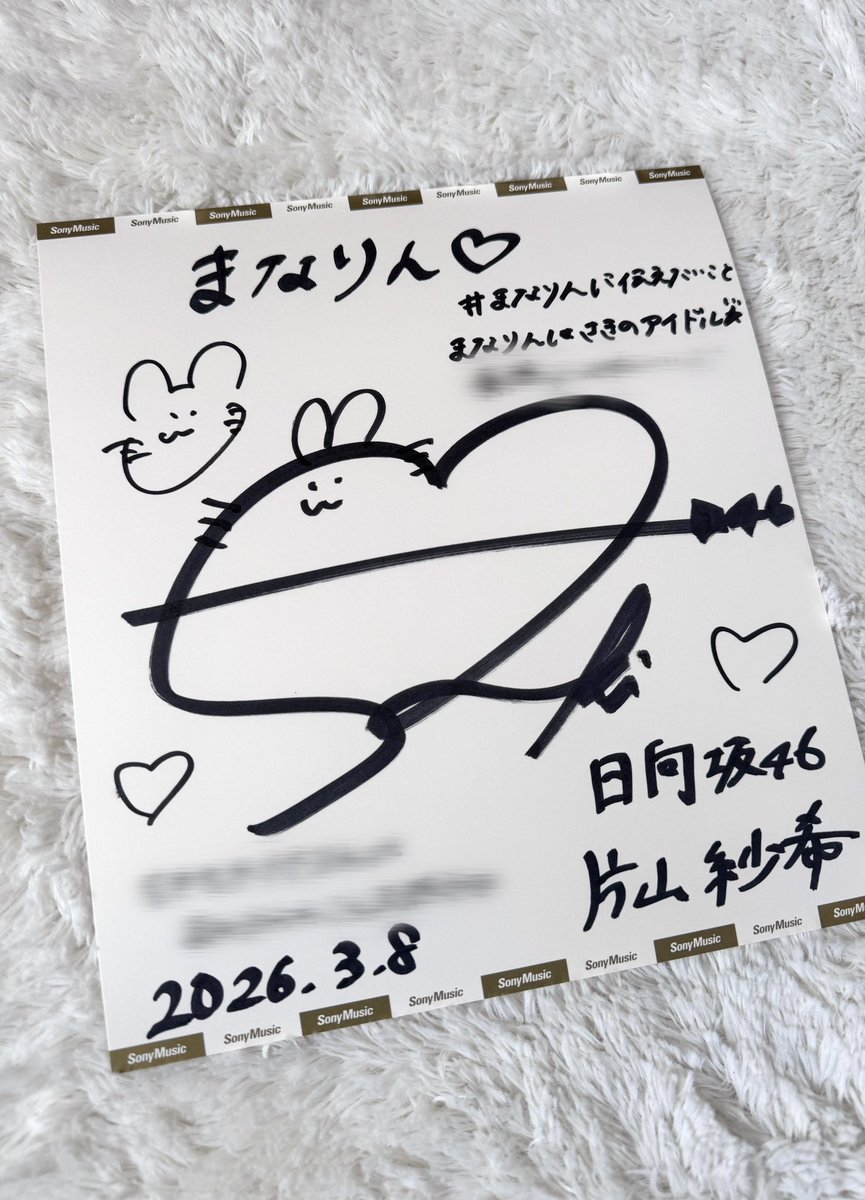 SonyMusic SonyMusic SonyMusic SonyMusic SonyMusic SonyMusic SonyMusic SonyMusic
まなりん♡
#まなりんに伝えたいこと
まなりんはさきのアイドル
46
日向坂46
片山紗希
2026.3.8
SonyMusic SonyMusic SonyMusic SonyMusic SonyMusic SonyMusic SonyMusic SonyMusic SonyMusic